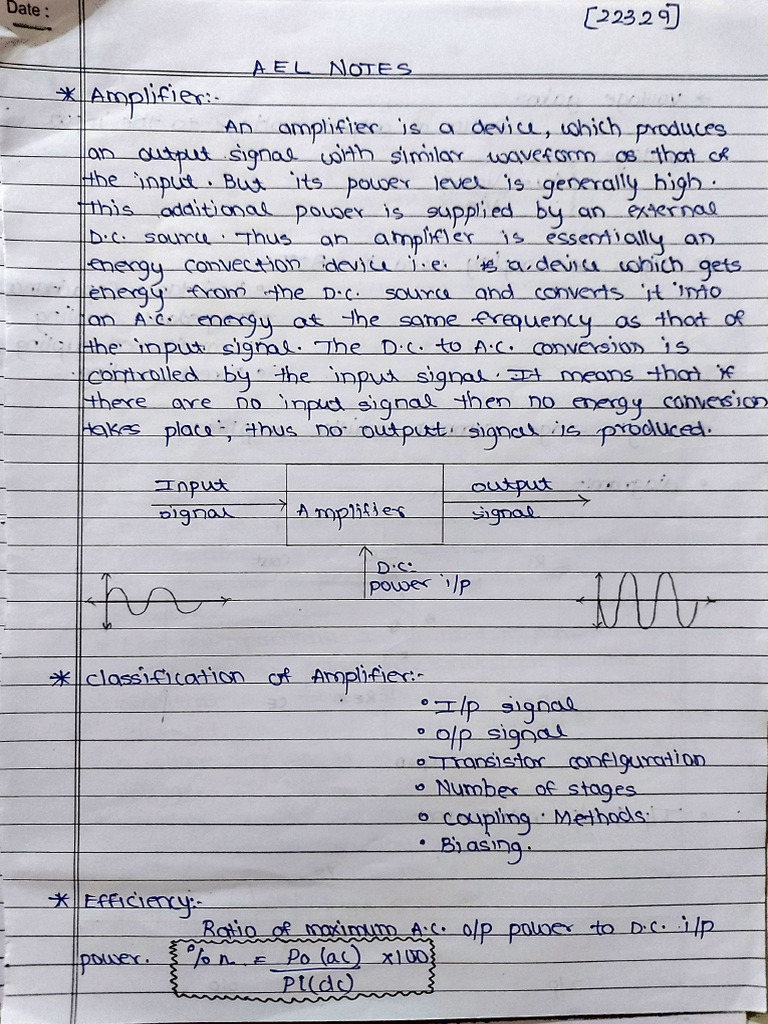 Date :
[22329]
AEL NOTES
* Amplifier:-
An amplifier is a device, which produces
an output signal with similar waveform as that of
the input. But its power level is generally high.
This additional power is supplied by an external
D.C. source. Thus an amplifier is essentially an
energy convection device i.e. is a device which gets
energy from the D.C. source and converts it into
an A.C. energy at the same frequency as that of
the input signal. The D.C. to A.C. conversion is
controlled by the input signal. It means that if
there are no input signal then no energy conversion
takes place, thus no output signal is produced.
Input
signal
Amplifier
output
signal
D.C.
power i/p
* Classification of Amplifier:-
• I/p signal
• O/p signal
• Transistor configuration
• Number of stages
• Coupling Methods
• Biasing.
* Efficiency:-
Ratio of maximum A.C. o/p power to D.C. i/p
power.
% n = Po (ac) x100
PI(dc)